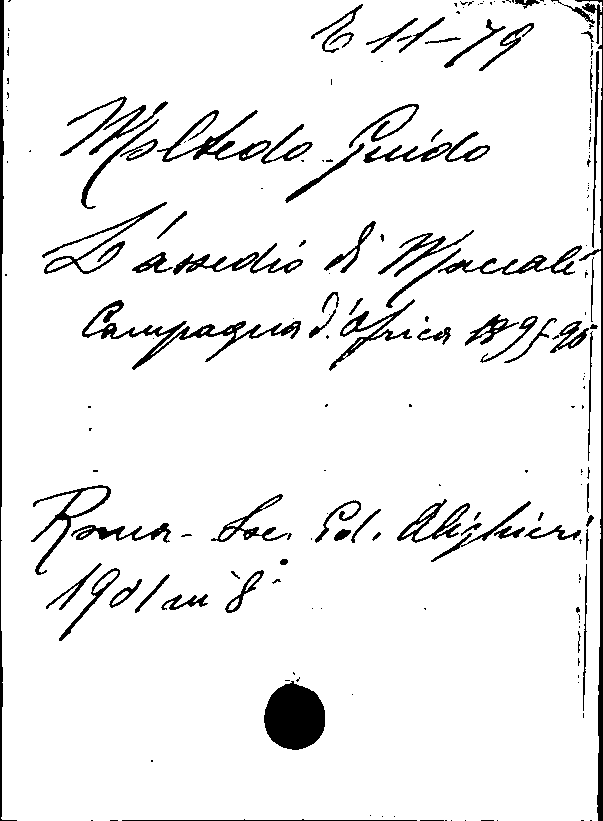 E 11-79
Moltedo Guido
L'assedio di Maccalé
Campagna d'Africa 1895-96
Roma - Soc. Ed. Alighieri
1901 in 8°